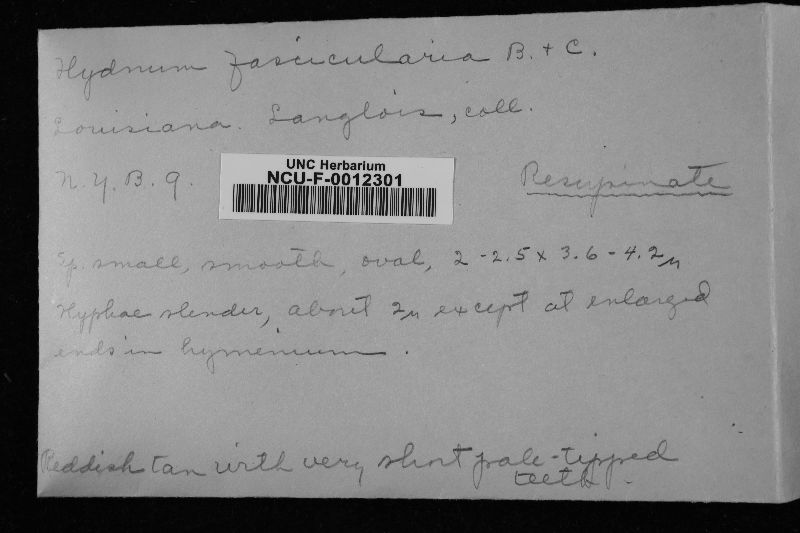 Hydnum fascicularia B. & C.
Louisiana. Langlois, coll.
N. Y. B. G.
UNC Herbarium
NCU-F-0012301
Resupinate
Sp. small, smooth, oval, 2-2.5 x 3.6-4.2µ
Hyphae slender, about 2µ except at enlarged
ends in hymenium.
Reddish tan with very short pale-tipped
teeth.